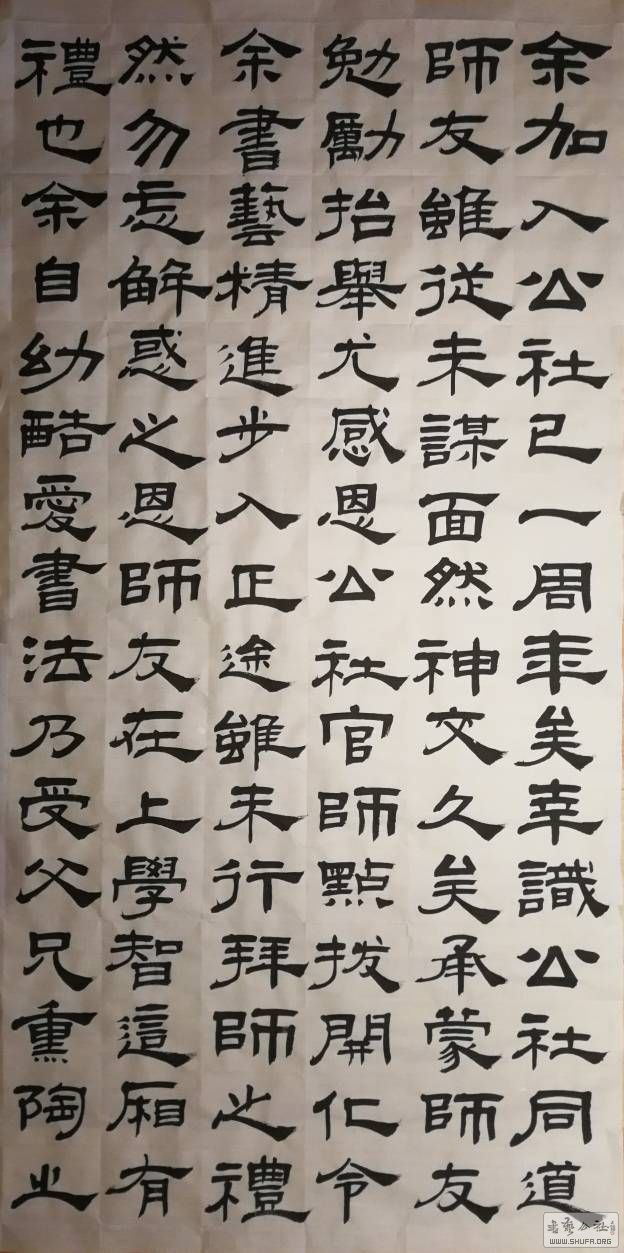 余加入公社已一周年矣幸識公社同道
師友雖從未謀面然神交久矣承蒙師友
勉勵抬舉尤感恩公社官師點拨開化令
余書藝精進步入正途雖未行拜師之禮
然勿忘解惑之恩師友在上學智這厢有
禮也余自幼酷愛書法乃受父兄熏陶之
书艺公社
WWW.SHUFA.ORG